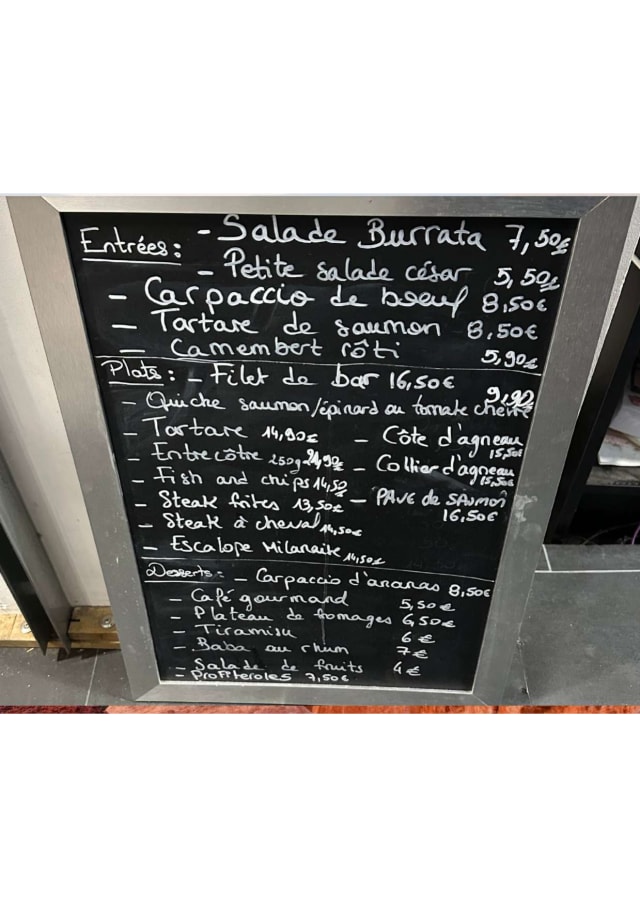 Entrées : - Salade Burrata 7,50€
- Petite salade césar 5,50€
- Carpaccio de boeuf 8,50€
- Tartare de saumon 8,50€
- Camembert rôti 5,90€
Plats : - Filet de bar 16,50€
- Quiche saumon/épinard ou tomate chèvre 9,90
- Tartare 14,90€ - Côte d'agneau 15,50€
- Entrecôtre 250g 21,90€ - Collier d'agneau 15,50€
- Fish and chips 14,50 - PAVE de SAUMON 16,50€
- Steak frites 13,50€
- Steak à cheval 14,50€
- Escalope Milanaise 14,50€
Desserts : - Carpaccio d'ananas 8,50€
- Café gourmand 5,50€
- Plateau de fromages 6,50€
- Tiramisu 6€
- Baba au rhum 7€
- Salade de fruits 4€
- Profiteroles 7,50€